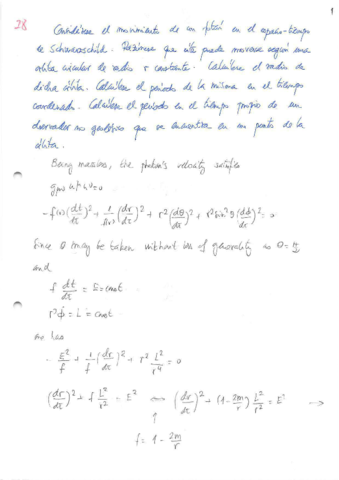 1
28 Considérese el movimiento de un fotón en el espacio-tiempo
de Schwarzschild. Pruébese que éste puede moverse según una
órbita circular de radio r constante. Calcúlese el radio de
dicha órbita. Calcúlese el periodo de la misma en el tiempo
coordenado. Calcúlese el periodo en el tiempo propio de un
observador no geodésico que se encuentra en un punto de la
órbita.
Being massless, the photon's velocity satisfies
gμν uμ uν = 0
- f(r)(dt/dτ)² + 1/f(r) (dr/dτ)² + r²(dθ/dτ)² + r² sin²θ (dϕ/dτ)² = 0
Since θ may be taken without loss of generality as θ = π/2
and
f dt/dτ = E = const
r² ϕ̇ = L = const
one has
- E²/f + 1/f (dr/dτ)² + r² L²/r⁴ = 0
(dr/dτ)² + f L²/r² = E² ⇔ (dr/dτ)² + (1 - 2m/r) L²/r² = E² →
↑
f = 1 - 2m/r